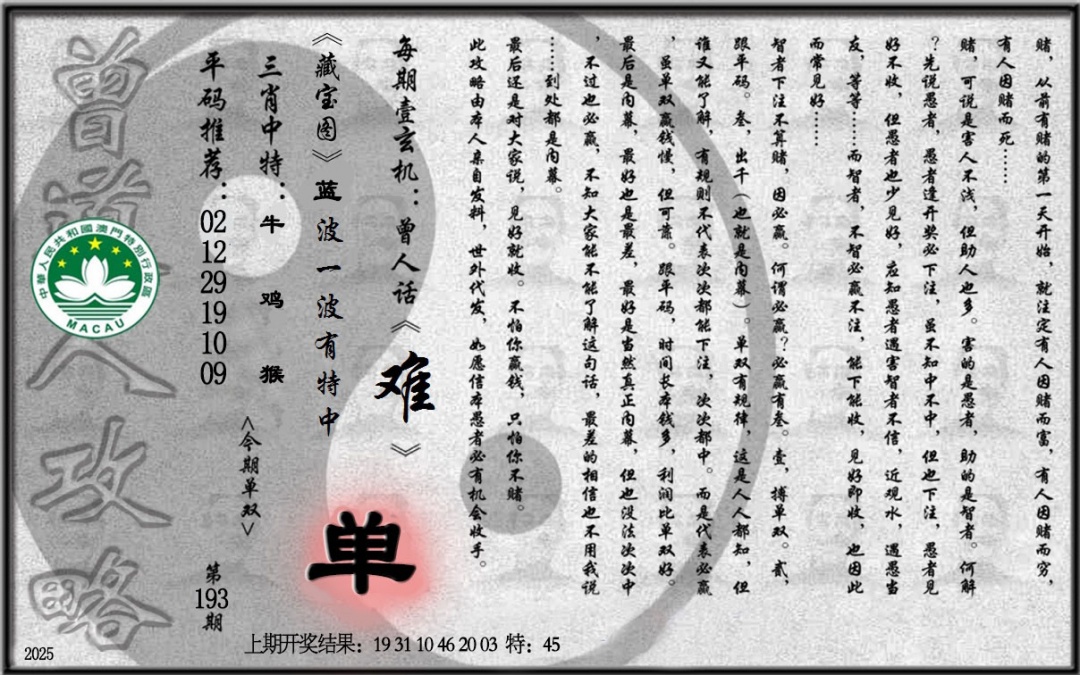 赌，从前有赌的第一天开始，就注定有人因赌而富，有人因赌而穷，
有人因赌而死……
赌，可说是害人不浅，但助人也多。害的是愚者，助的是智者。何解
？先说愚者，愚者逢开奖必下注，虽不知中不中，但也下注，愚者见
好不收，但愚者也少见好，应知愚者遇害智者不信，近观水，遇愚当
友，等等……而智者，不智必赢不注，能下能收，见好即收，也因此
而常见好……
智者下注不算赌，因必赢。何谓必赢？必赢有叁。壹，搏单双。贰，
跟平码。叁，出千（也就是内幕）。单双有规律，这是人人都知，但
谁又能了解，有规则不代表次次都能下注，次次都中。而是代表必赢
，虽单双赢钱慢，但可靠。跟平码，时间长本钱多，利润比单双好。
最后是内幕，最好也是最差，最好是当然真正内幕，但也没法次次中
，不过也必赢，不知大家能不能了解这句话，最差的相信也不用我说
……到处都是内幕。
最后还是对大家说，见好就收。不怕你赢钱，只怕你不赌。
此攻略由本人亲自发料，世外代发，如愿信本愚者必有机会收手。
每期壹玄机：曾人话《难》
《藏宝图》蓝波一波有特中
单
三肖中特：牛 鸡 猴
<今期单双>
平码推荐：02 12 29 19 10 09
第193期
曾道人攻略
中華人民共和國澳門特別行政區
MACAU
2025
上期开奖结果：19 31 10 46 20 03 特：45